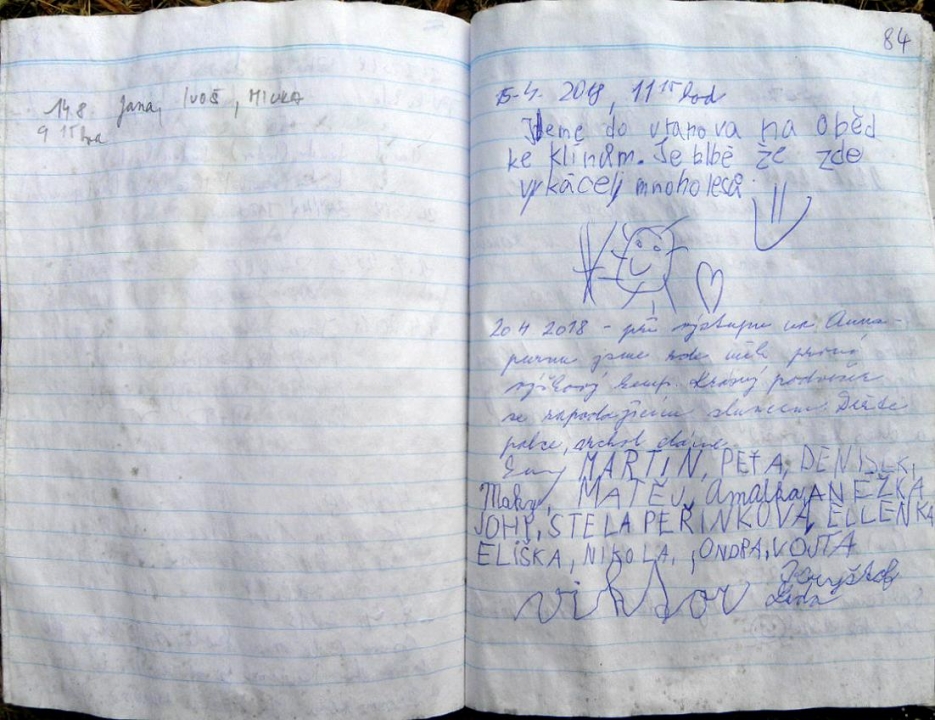 14.8 Jana, Ivoš, Mirka
9 15
84
15.4. 2018, 11 15 hod
Jdeme do vranova na oběd
ke klínům. Je blbě že zde
vykáceli mnoho lesů
20 4 2018 - při výstupu na Anna-
purnu jsme zde měli první
výškový kemp. Krásný podvečer
se zapadajícím sluncem.
MARTIN, PEŤA, DENISEK,
Maky, MATĚJ, Amálka, ANEŽKA
JOHY, STELA PEŘINKOVÁ, ELLENKA
ELIŠKA, NIKOLA, ONDRA, VOJTA
viktor